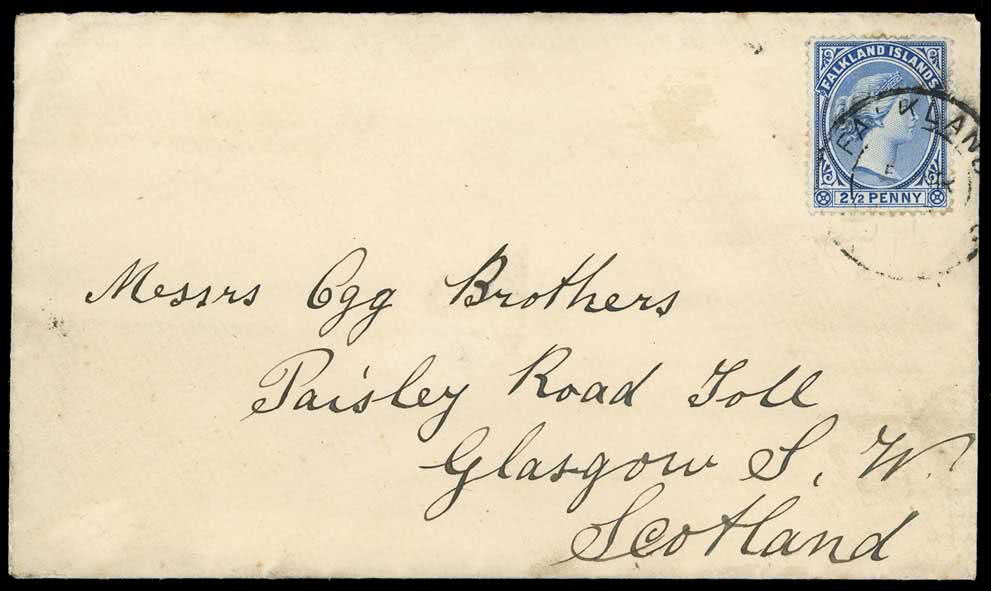 FALKLAND ISLANDS
2½ PENNY
FALKLAND
Messrs Ogg Brothers
Paisley Road Toll
Glasgow S. W.
Scotland